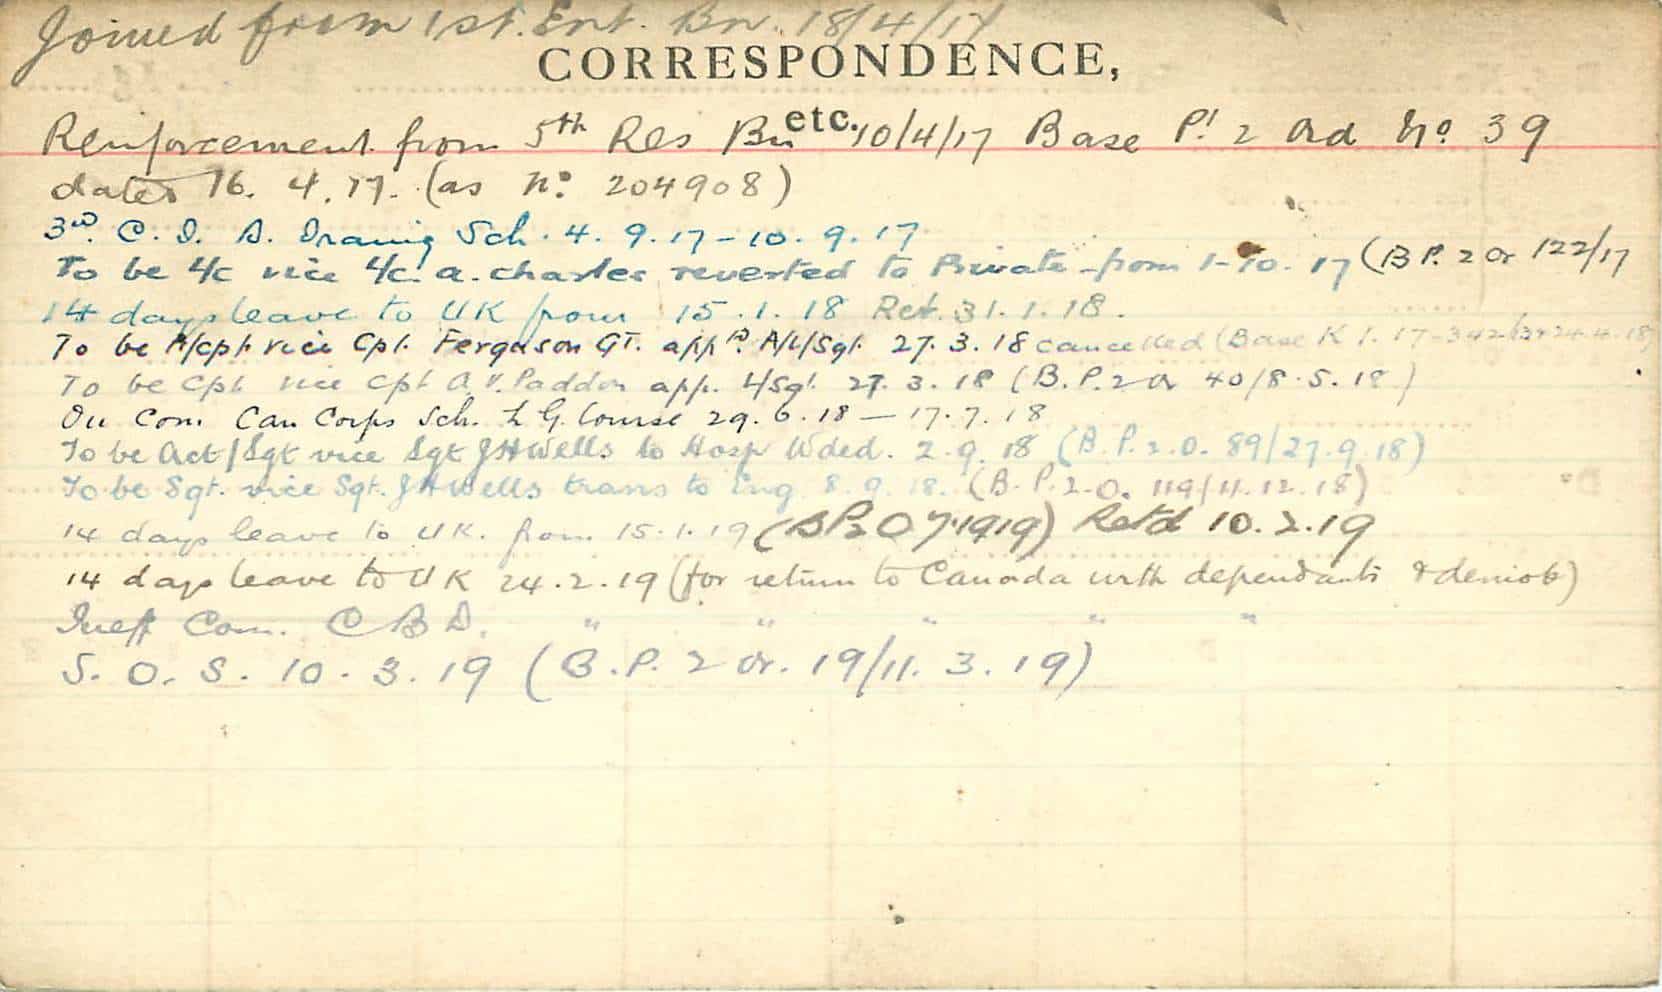 Joined from 1st. Ent. Bn. 18/4/17
CORRESPONDENCE,
etc.
Reinforcement from 5th Res Bn 10/4/17 Base Pt 2 Ord No. 39
dated 16. 4. 17. (as No. 204908)
3rd. C. I. B. Draing Sch. 4. 9. 17 - 10. 9. 17
To be L/c vice L/c. A. Charles reverted to Private from 1-10. 17 (B P. 2 Or 122/17
14 days leave to UK from 15. 1. 18 Ret. 31. 1. 18.
To be A/cpl vice Cpl. Ferguson GT. appd. A/L/Sgt 27. 3. 18 cancelled (Base K 1. 17-342 24.4.18)
To be Cpl vice Cpl A. V. Paddon app. L/Sgt. 27. 3. 18 (B. P. 2 Or 40/8. 5. 18)
On Com. Can Corps Sch. L G. Course 29. 6. 18 — 17. 7. 18
To be Act/Sgt vice Sgt J H Wells to Hosp Wded. 2. 9. 18 (B. P. 2. O. 89/27. 9. 18)
To be Sgt. vice Sgt. J H Wells trans to Eng 8. 9. 18. (B. P. 2. O. 119/11. 12. 18)
14 days leave to UK. from 15. 1. 19 (BP2 O 7.1919) Retd 10. 2. 19
14 days leave to UK 24. 2. 19 (for return to Canada with dependants & demob)
Ineff Com. C B D. " " " " "
S. O. S. 10. 3. 19 (B. P. 2 Or. 19/11. 3. 19)